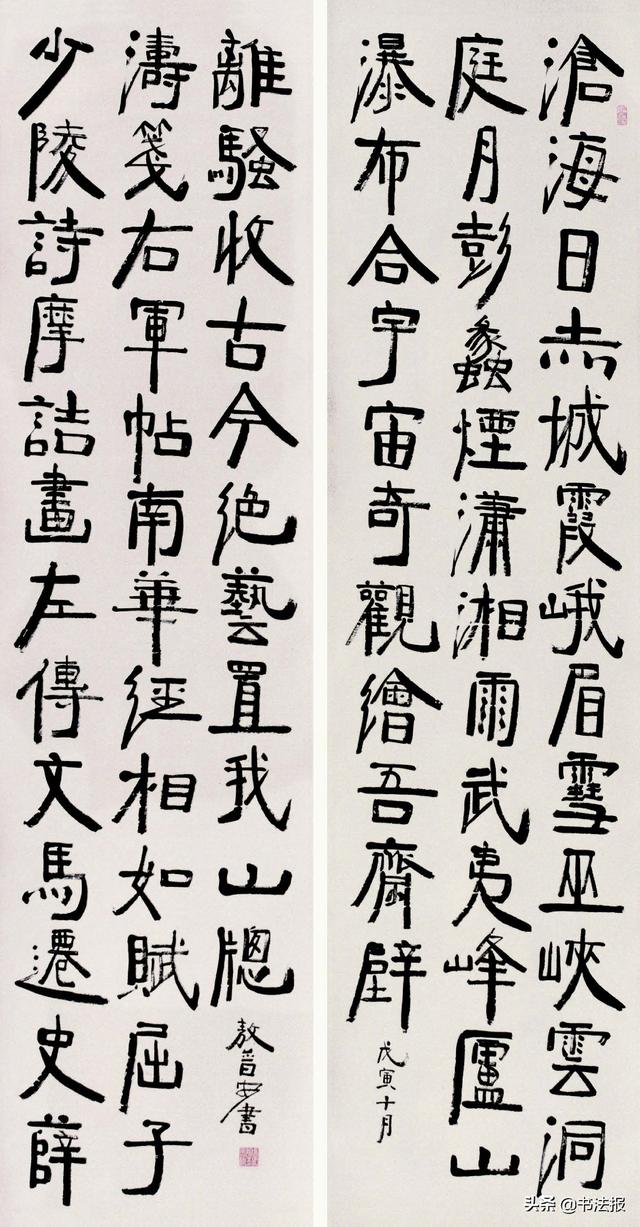 滄海日赤城霞峨眉雪巫峽雲洞
庭月彭蠡煙瀟湘雨武夷峰廬山
瀑布合宇宙奇觀繪吾齋壁
戊寅十月
少陵詩摩詰畫左傳文馬遷史薛
濤箋右軍帖南華經相如賦屈子
離騷收古今絕藝置我山牕
敖普安書
头条 @书法报